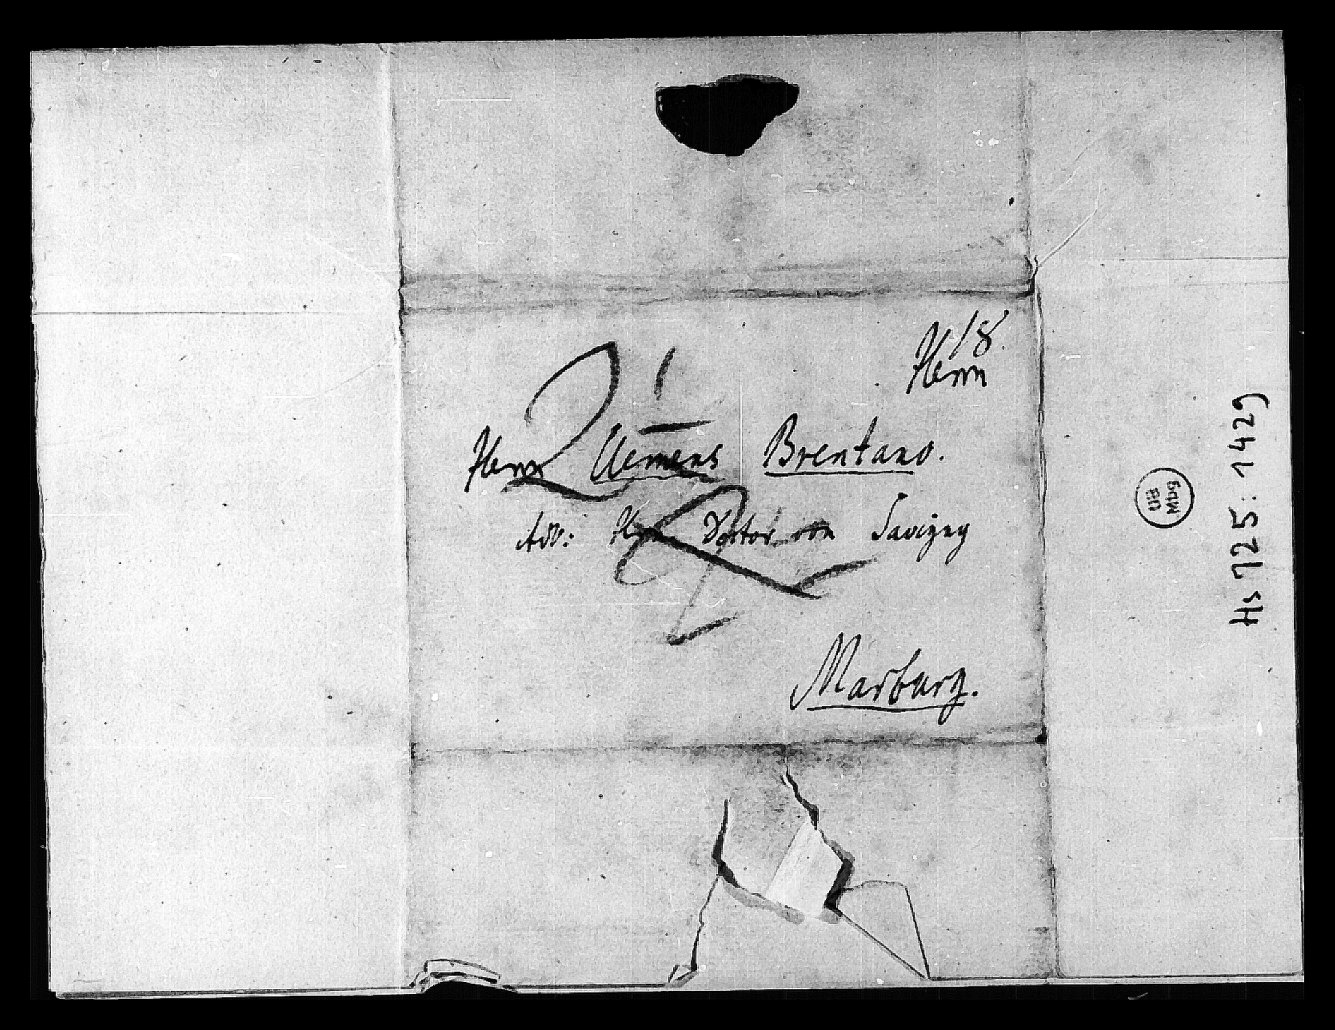 18.
Herrn
Herrn Clemens Brentano.
Adr: Hrn Doktor von Savigny
Marburg.
UB
Mbg
Hs 725: 1429